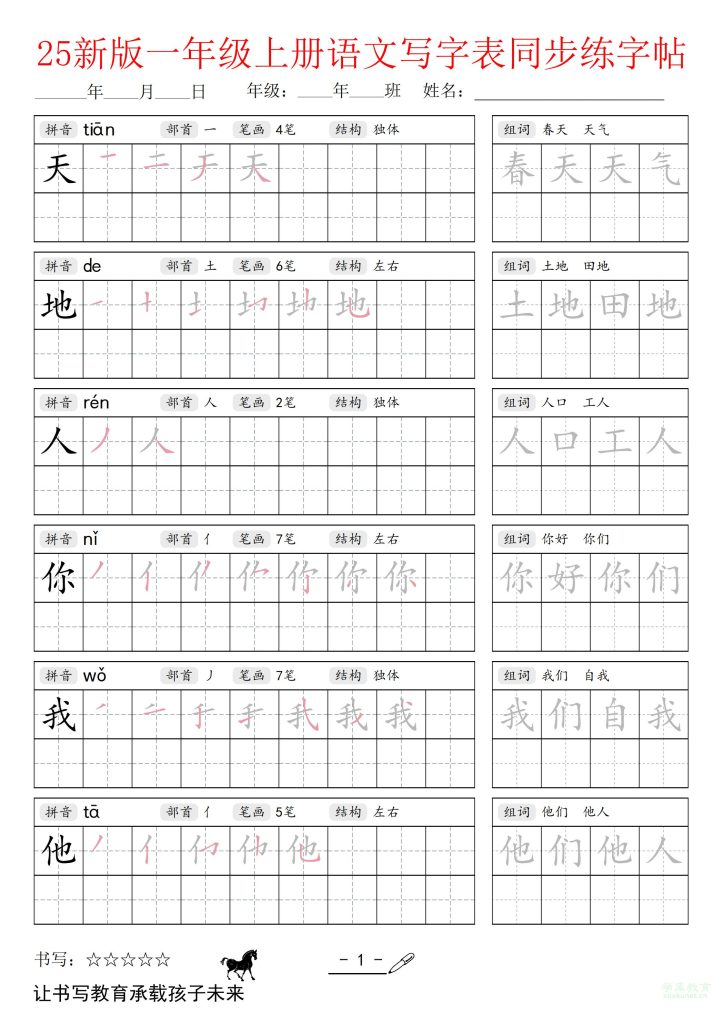 25新版一年级上册语文写字表同步练字帖
______年____月____日 年级：____年____班 姓名：____________________
拼音 tiān 部首 一 笔画 4笔 结构 独体 组词 春天 天气
天 春天天气
拼音 de 部首 土 笔画 6笔 结构 左右 组词 土地 田地
地 土地田地
拼音 rén 部首 人 笔画 2笔 结构 独体 组词 人口 工人
人 人口工人
拼音 nǐ 部首 亻 笔画 7笔 结构 左右 组词 你好 你们
你 你好你们
拼音 wǒ 部首 丿 笔画 7笔 结构 独体 组词 我们 自我
我 我们自我
拼音 tā 部首 亻 笔画 5笔 结构 左右 组词 他们 他人
他 他们他人
书写：☆☆☆☆☆ - 1 -
让书写教育承载孩子未来